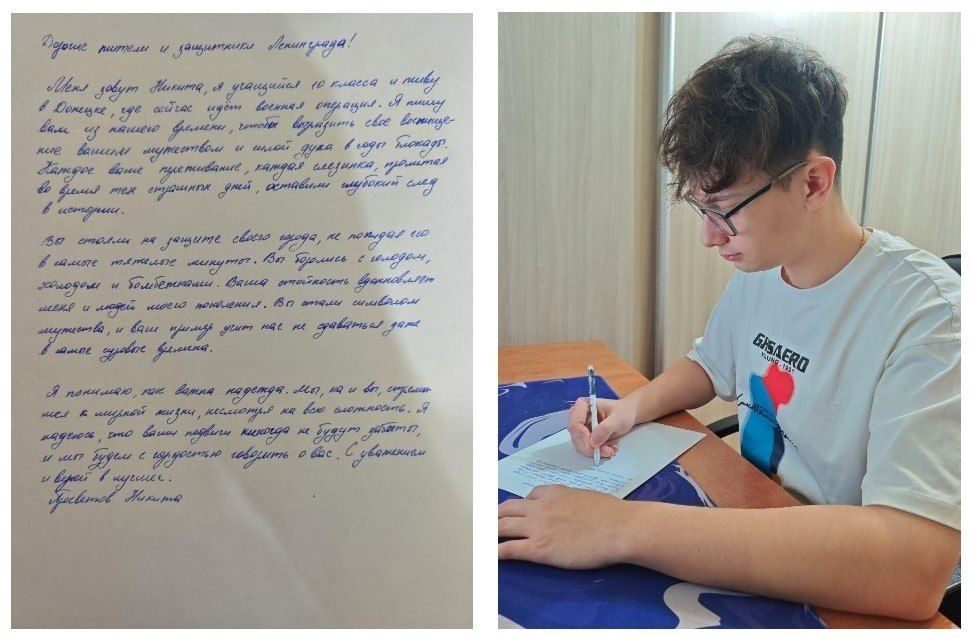 Дорогие жители и защитники Ленинграда!
Меня зовут Никита, я учащийся 10 класса и живу
в Донецке, где сейчас идёт военная операция. Я пишу
вам из нашего времени, чтобы выразить своё восхище-
ние вашим мужеством и силой духа в годы блокады.
Каждое ваше переживание, каждая слезинка, пролитая
во время тех страшных дней, оставили глубокий след
в истории.
Вы стояли на защите своего города, не покидая его
в самые тяжелые минуты. Вы боролись с голодом,
холодом и бомбежками. Ваша стойкость вдохновляет
меня и людей моего поколения. Вы стали символом
мужества, и ваш пример учит нас не сдаваться даже
в самые суровые времена.
Я понимаю, как важна надежда. Мы, ка и вы, стреми
мся к мирной жизни, несмотря на всю сложность. Я
надеюсь, что ваши подвиги никогда не будут забыты,
и мы будем с гордостью говорить о вас. С уважением
и верой в лучшее.
Просветов Никита
YOUNG